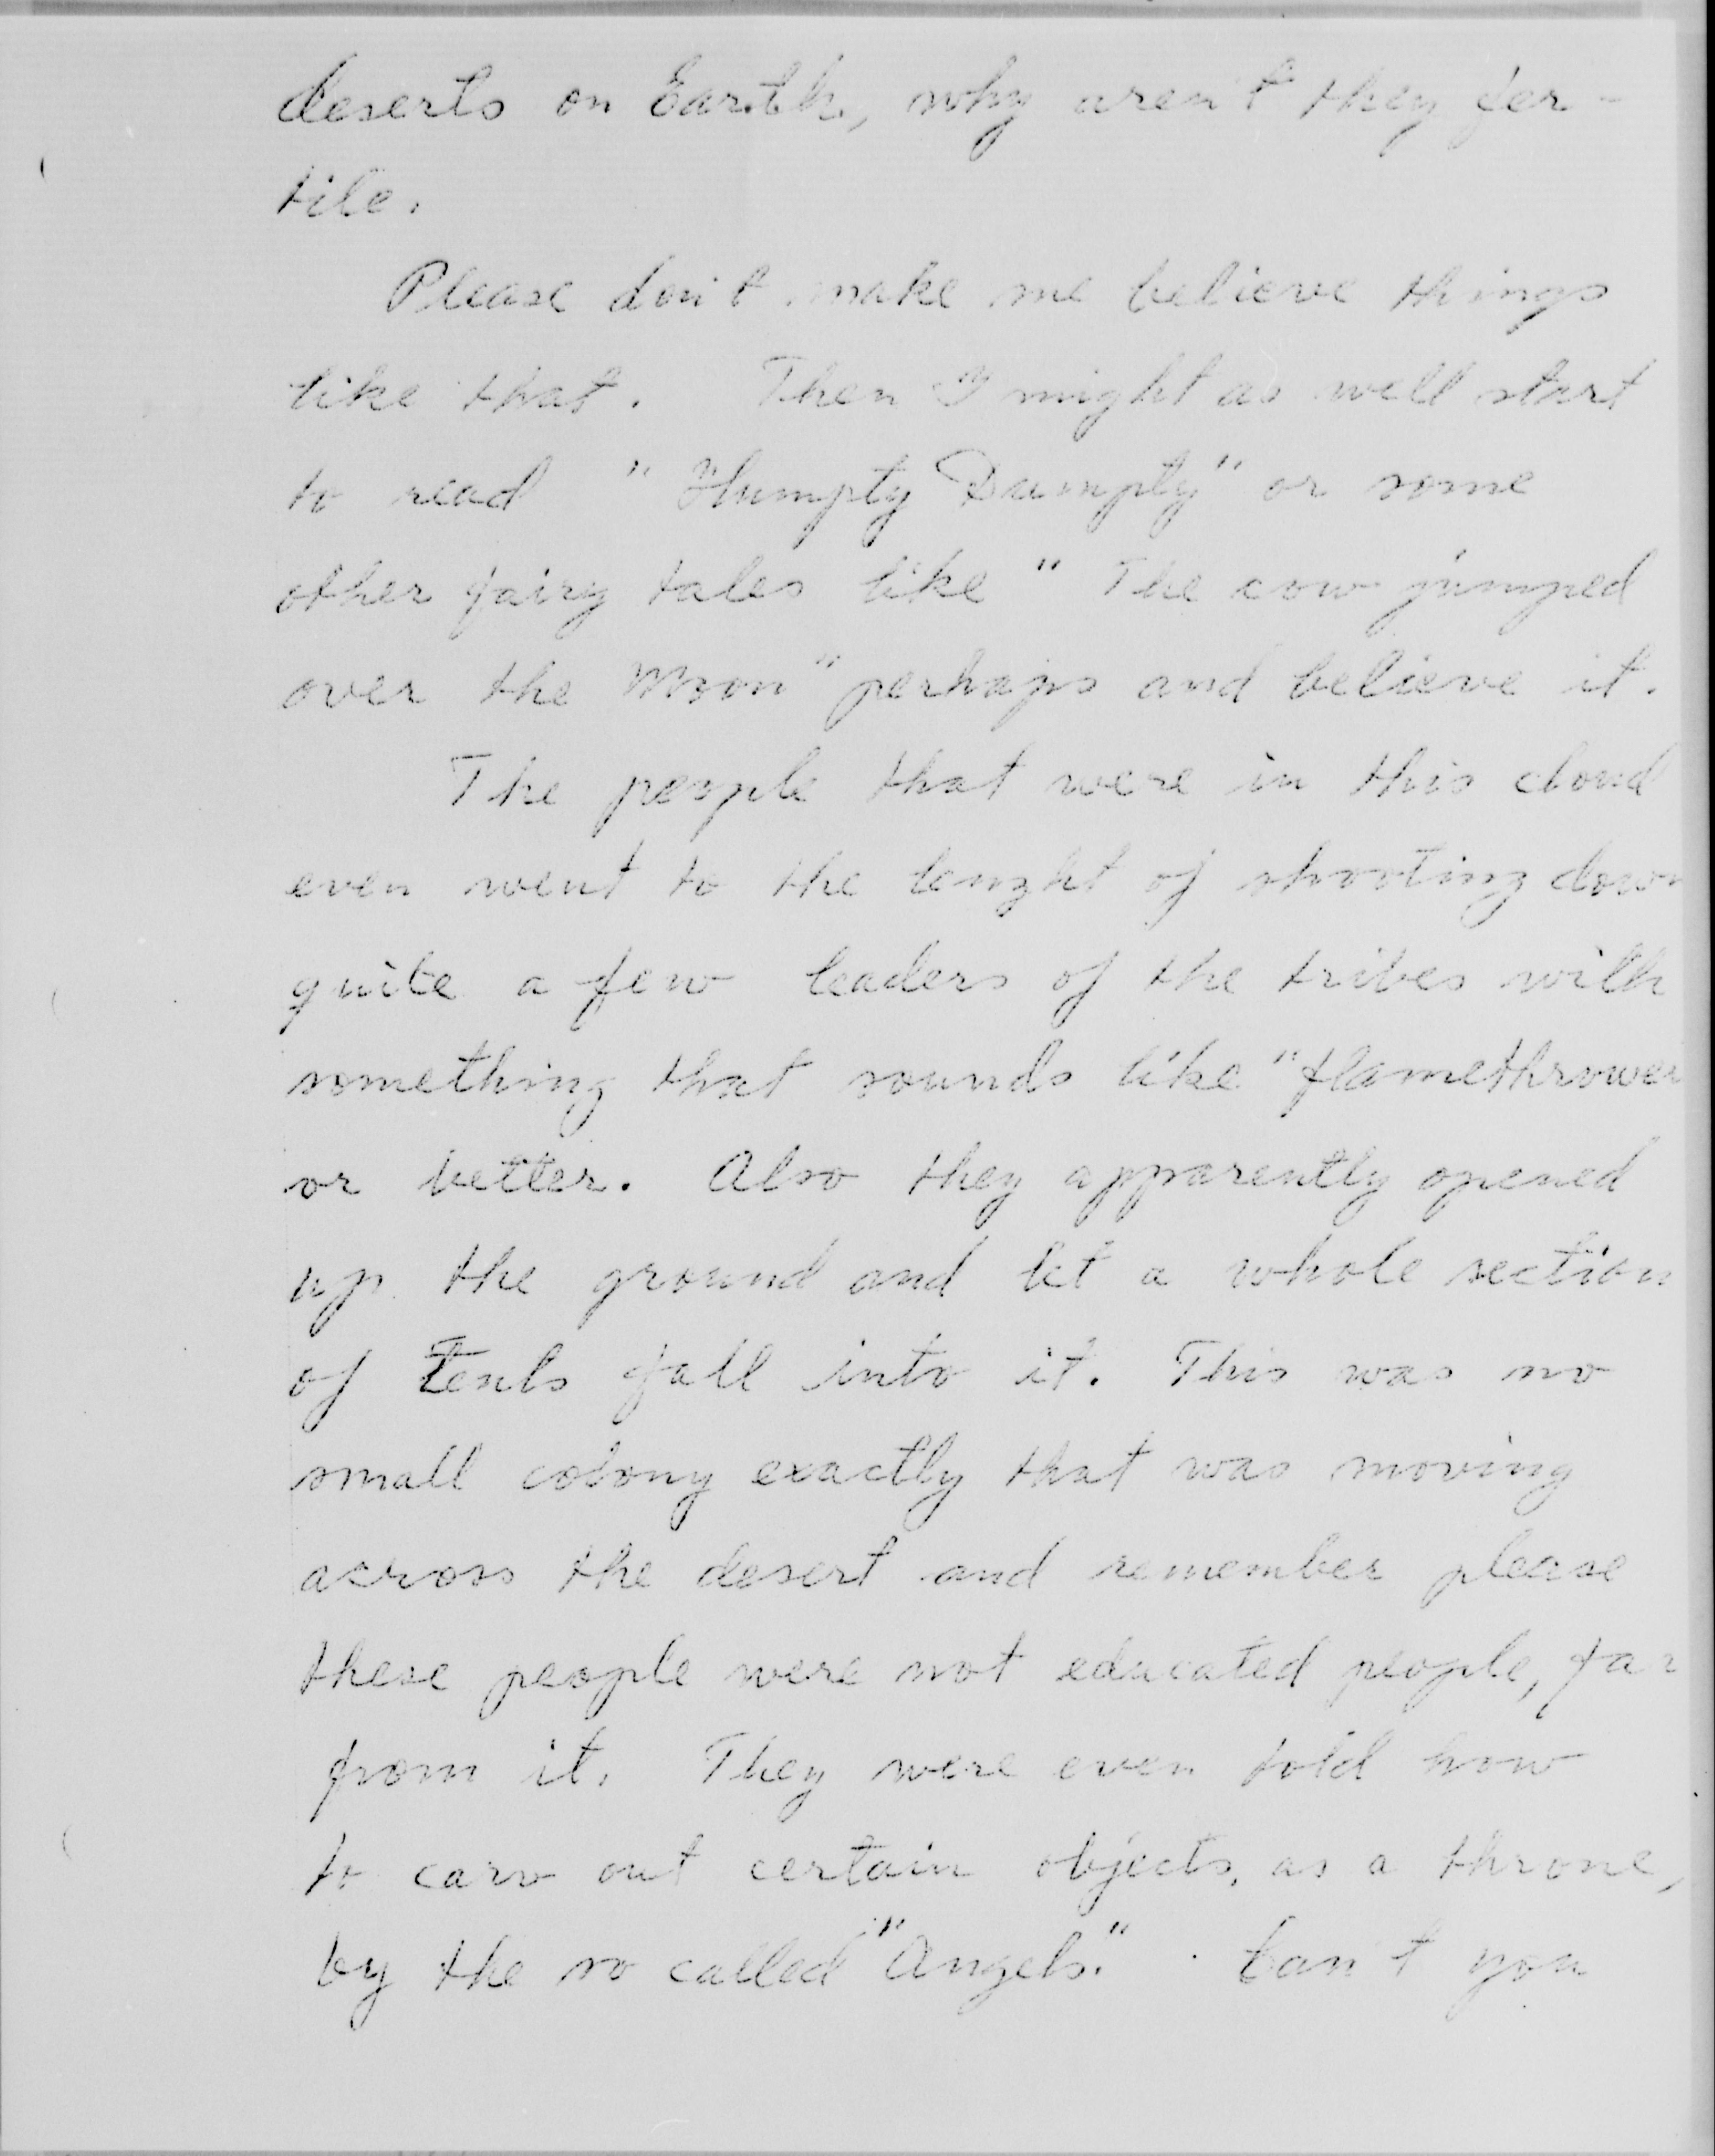 deserts on Earth, why aren't they fer-
tile.
Please don't make me believe things
like that. Then I might as well start
to read "Humpty Dumpty" or some
other fairy tales like "The cow jumped
over the Moon" perhaps and believe it.
The people that were in this cloud
even went to the lenght of shooting down
quite a few leaders of the tribes with
something that sounds like "flamethrower
or better. Also they apparently opened
up the ground and let a whole section
of Tents fall into it. This was no
small colony exactly that was moving
across the desert and remember please
these people were not educated people, far
from it. They were even told how
to carv out certain objects, as a throne,
by the so called "Angels." Can't you